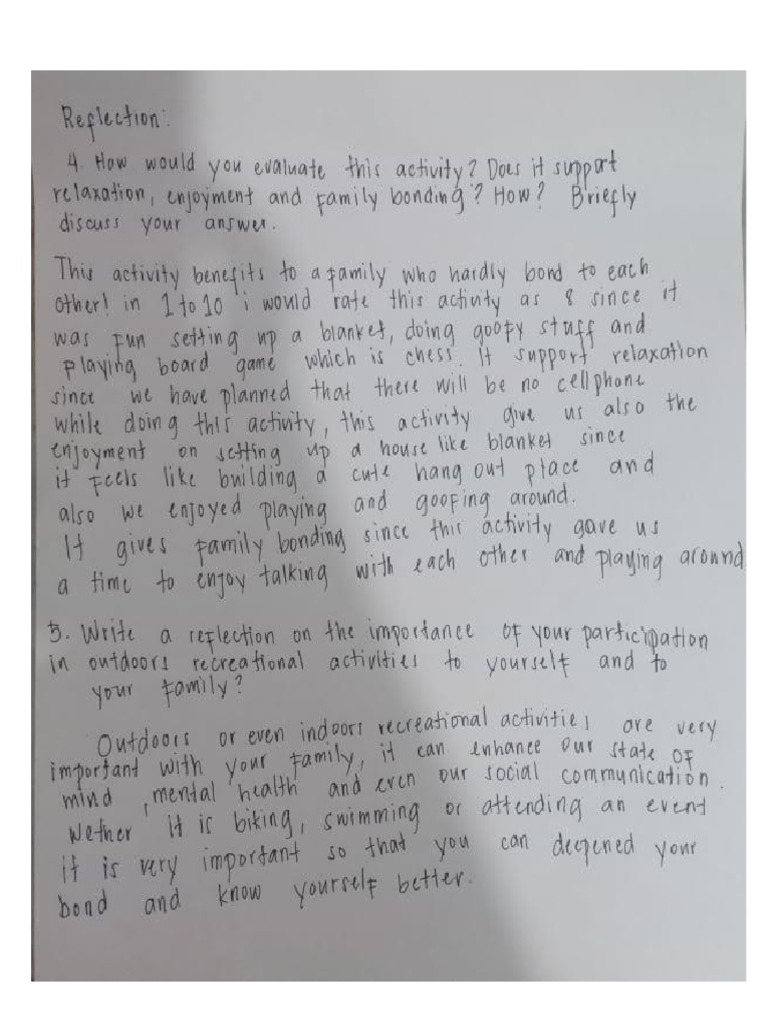 Reflection:
4. How would you evaluate this activity? Does it support
relaxation, enjoyment and family bonding? How? Briefly
discuss your answer.
This activity benefits to a family who hardly bond to each
other! in 1 to 10 i would rate this activity as 8 since it
was fun setting up a blanket, doing goofy stuff and
playing board game which is chess. It support relaxation
since we have planned that there will be no cellphone
while doing this activity, this activity give us also the
enjoyment on setting up a house like blanket since
it feels like building a cute hang out place and
also we enjoyed playing and goofing around.
It gives family bonding since this activity gave us
a time to enjoy talking with each other and playing around
5. Write a reflection on the importance of your participation
in outdoors recreational activities to yourself and to
your family?
Outdoors or even indoors recreational activities are very
important with your family, it can enhance our state of
mind, mental health and even our social communication.
Wether it is biking, swimming or attending an event
it is very important so that you can deepened your
bond and know yourself better.